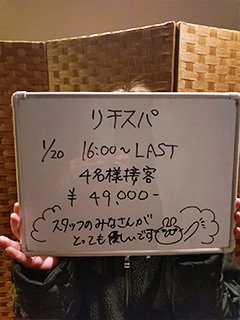 リチスパ
1/20 16:00~LAST
4名様接客
¥49,000-
スタッフのみなさんが
とっても優しいです